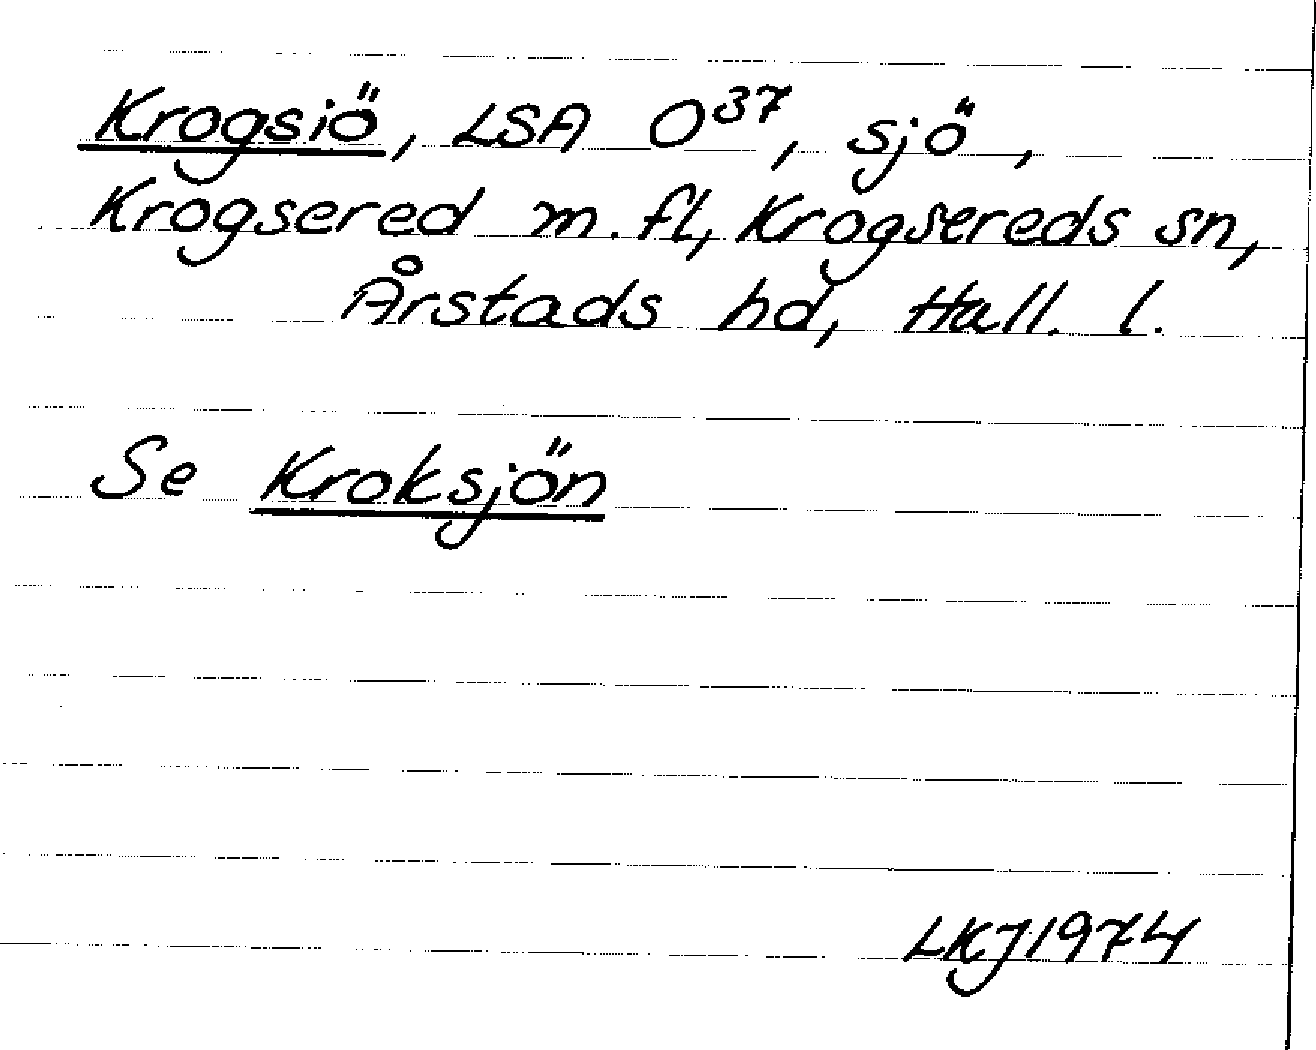 Krogsiö, LSA O37, sjö,
Krogsered m. fl, Krogsereds sn,
Årstads hd, Hall. l.
Se Kroksjön
LKJ1974